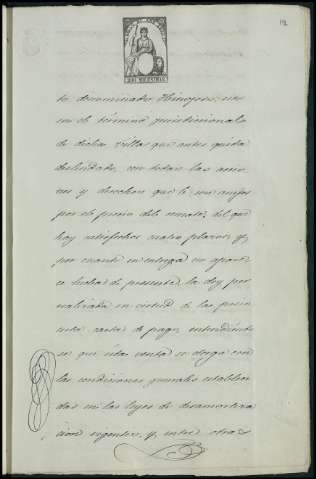 to denominado Hinojosa, sito
en el término jurisdiccional
de dicha villa que antes queda
deslindado, con todas las accio
nes y derechos que le son anejos
por el precio del remate, del que
hay satisfechos cuatro plazos, y,
por cuanto su entrega no apare
ce hecha de presente, la doy por
realizada en virtud de las presen
tada carta de pago, entendiéndo
se que ésta venta se otorga con
las condiciones generales estableci
das en las leyes de desamortiza
cion vigentes, y, entre otras